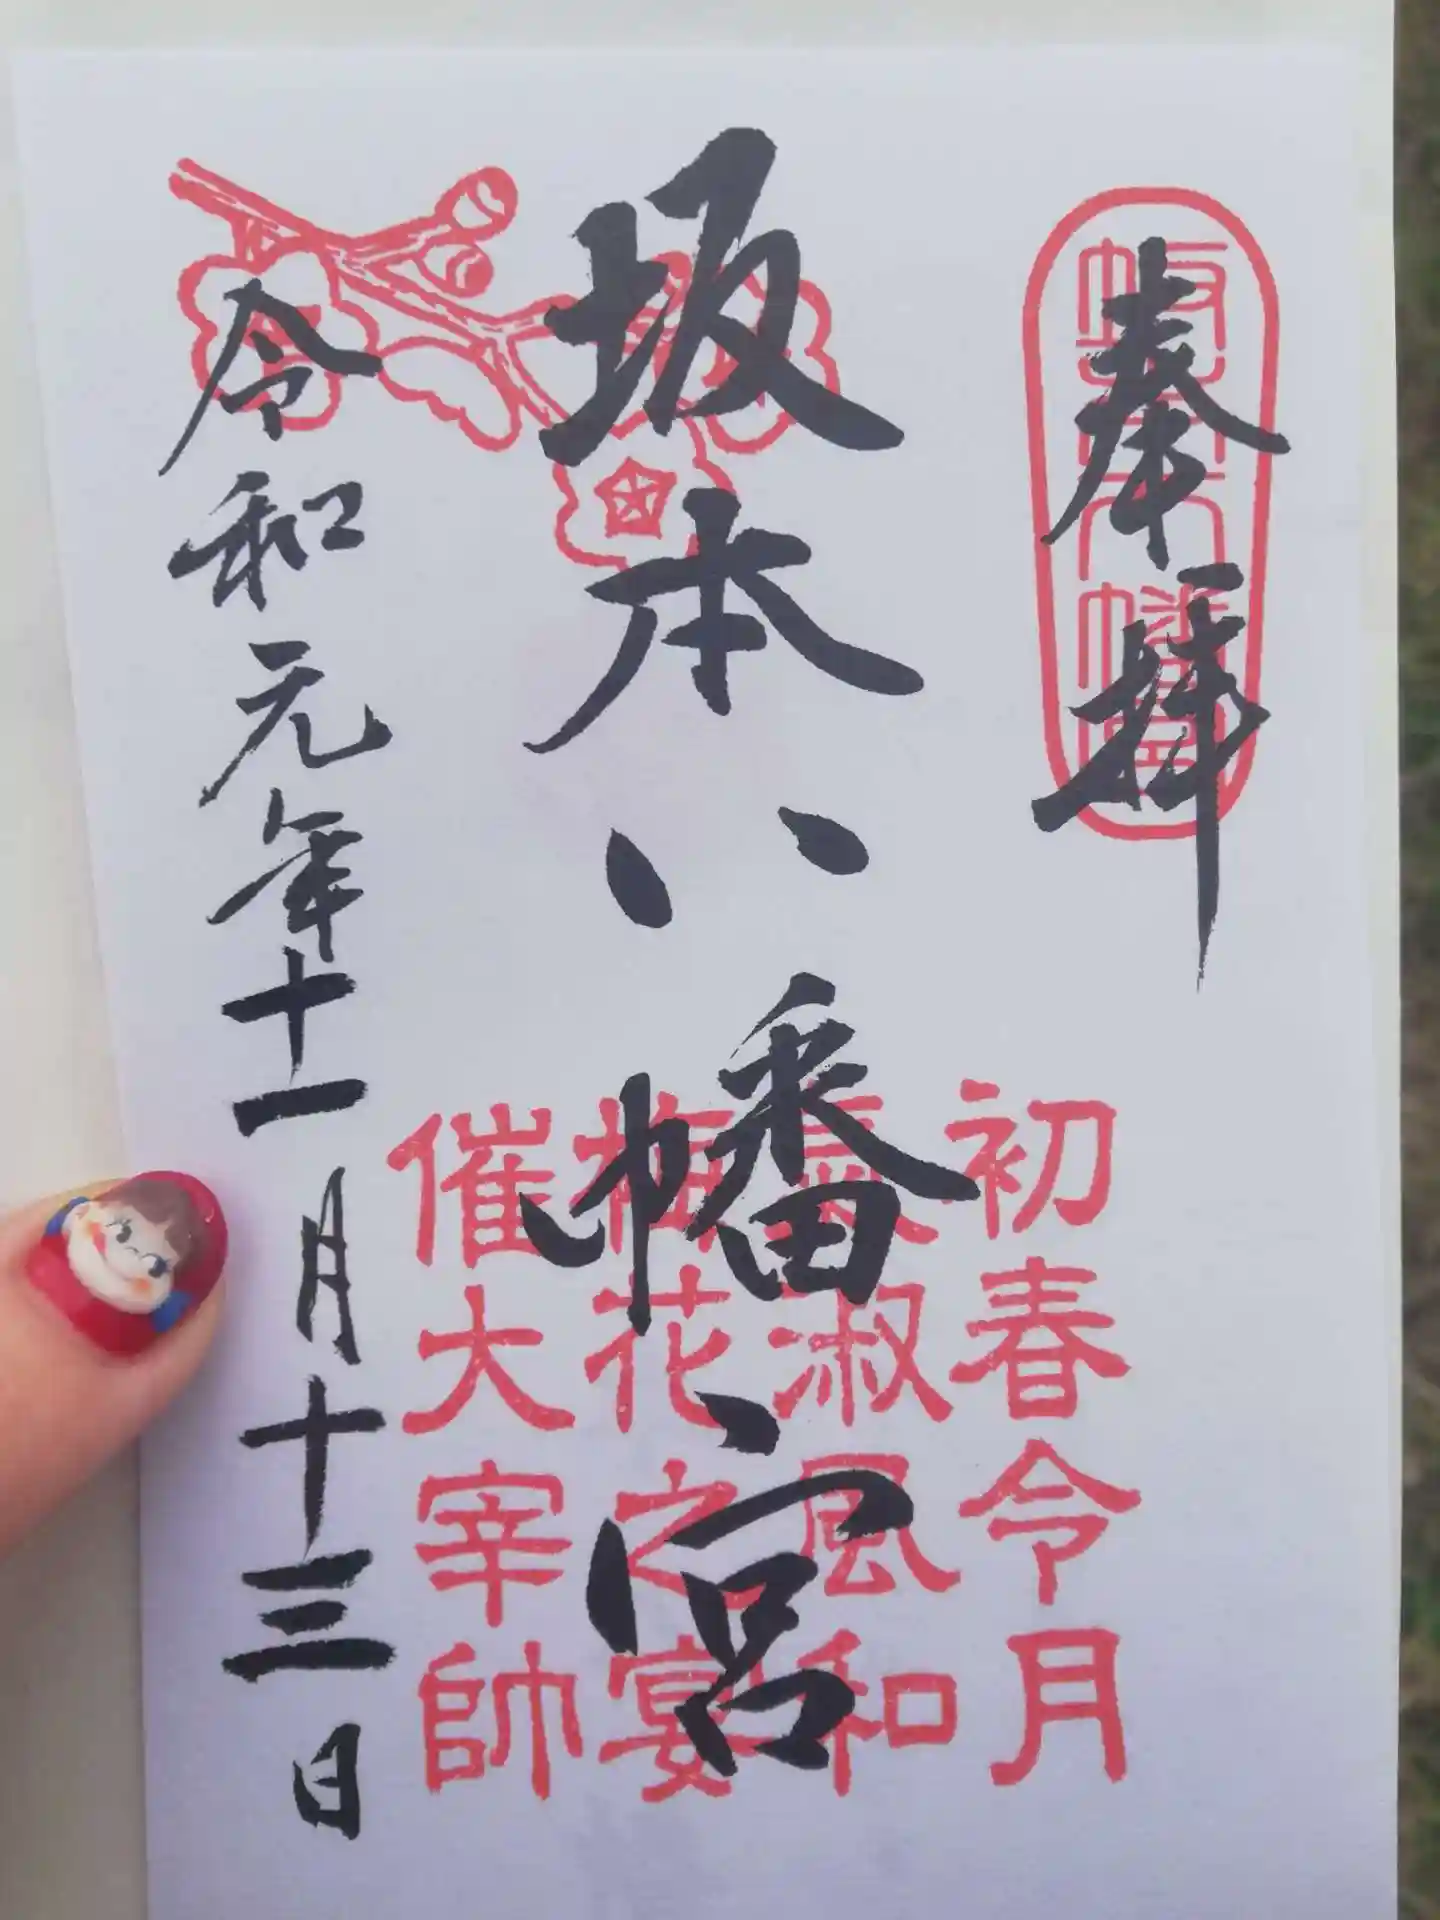 奉拝
坂本八幡宮
坂本八幡宮
令和元年十一月十三日
初春令月
氣淑風和
梅花之宴
催大宰帥